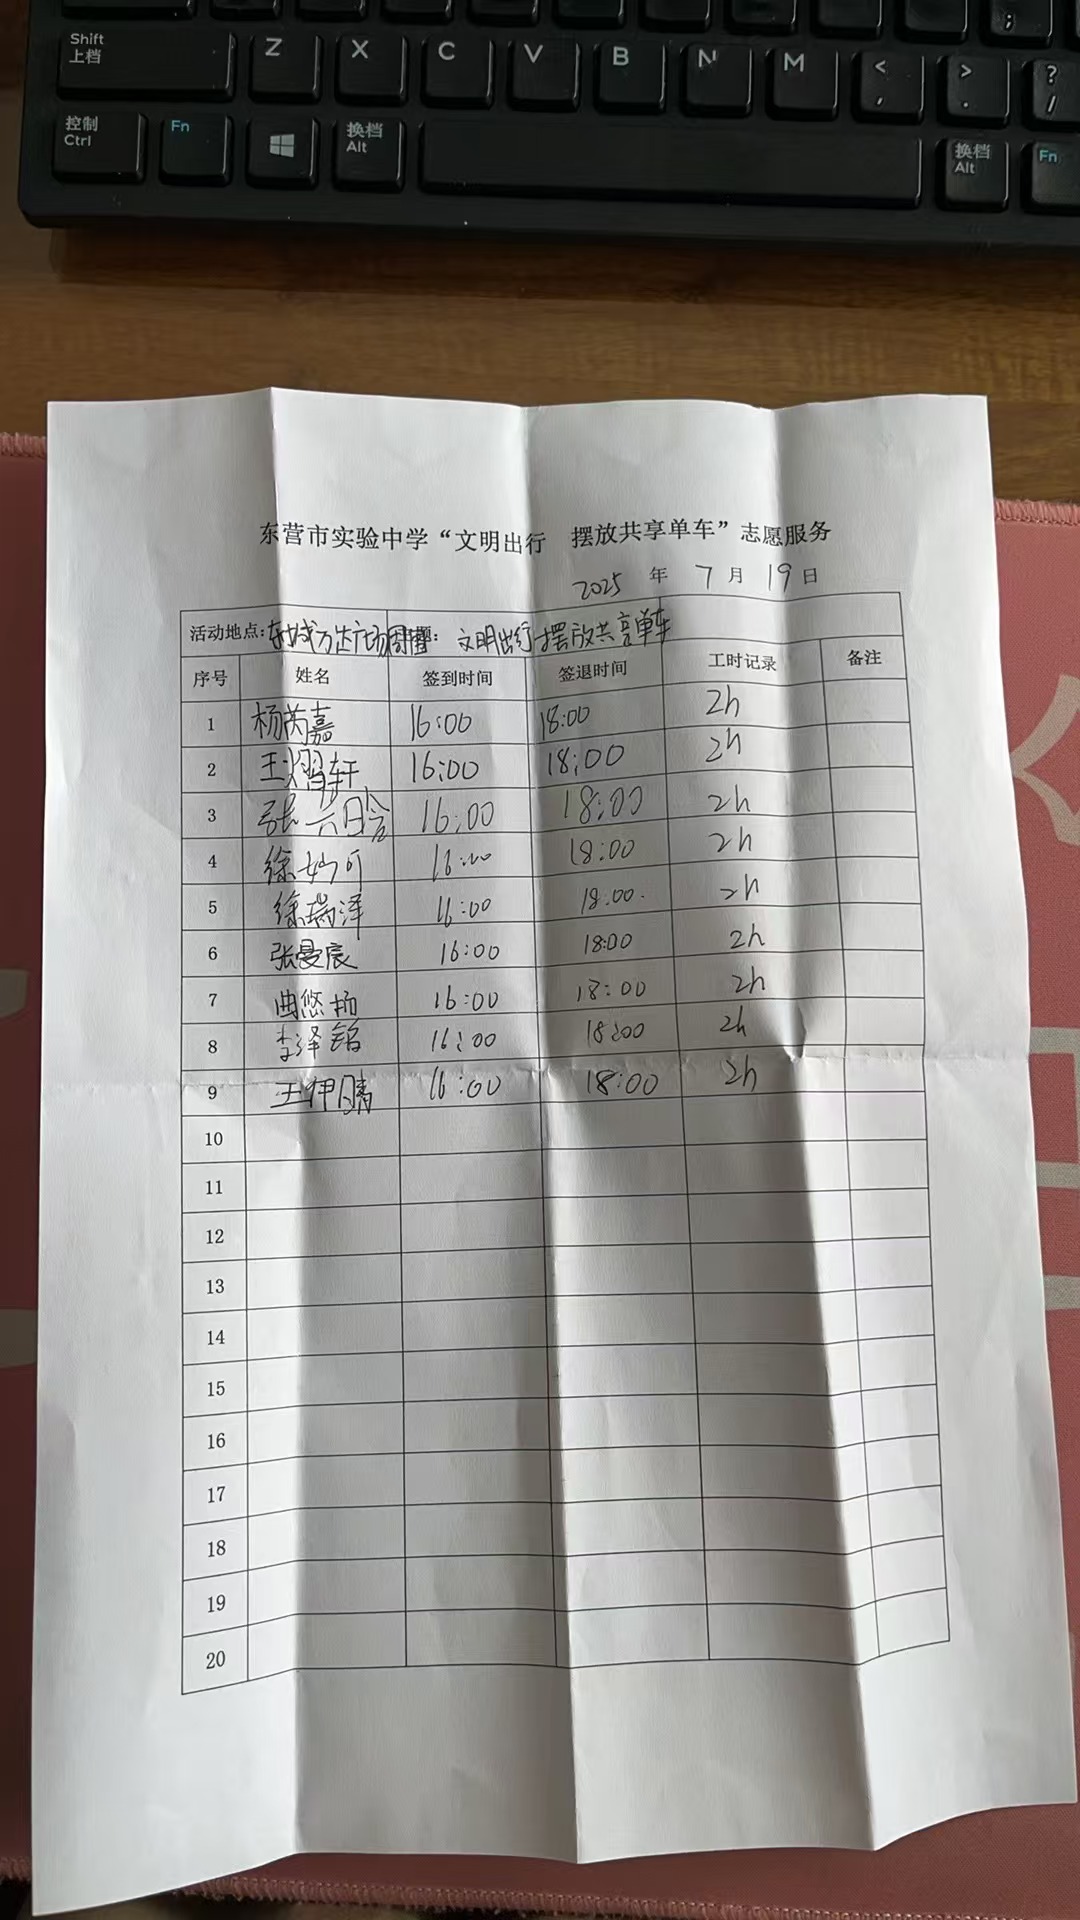 Shift
上档
Z X C V B N M < , > . ? /
;
控制
Ctrl
Fn
换档
Alt
换档
Alt
Fn
东营市实验中学“文明出行 摆放共享单车”志愿服务
2025 年 7 月 19 日
活动地点:东城万达广场周围 题: 文明出行 摆放共享单车
序号 姓名 签到时间 签退时间 工时记录 备注
1 杨芮嘉 16:00 18:00 2h
2 王熠轩 16:00 18:00 2h
3 张 16:00 18:00 2h
4 徐妙可 16:00 18:00 2h
5 徐瑞泽 16:00 18:00 2h
6 张曼宸 16:00 18:00 2h
7 曲悠扬 16:00 18:00 2h
8 李泽铭 16:00 18:00 2h
9 王伊晴 16:00 18:00 2h
10
11
12
13
14
15
16
17
18
19
20